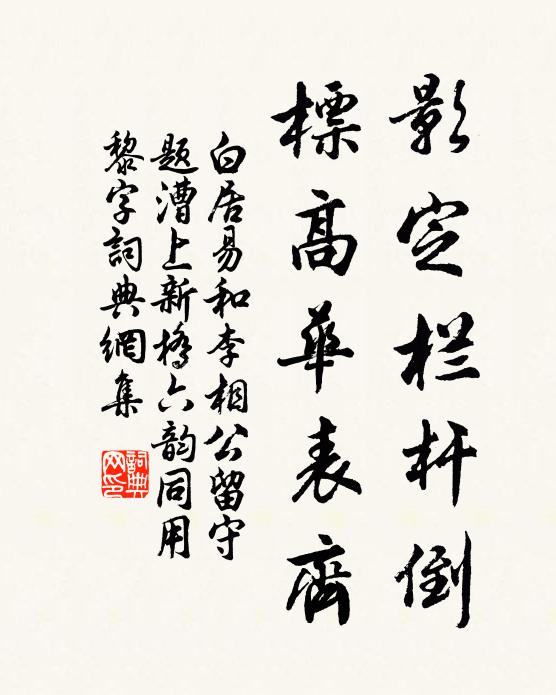 影定栏杆倒
標高華表齊
白居易和李相公留守
题漕上新橋六韵同用
黎字詞典網集
詞典网印